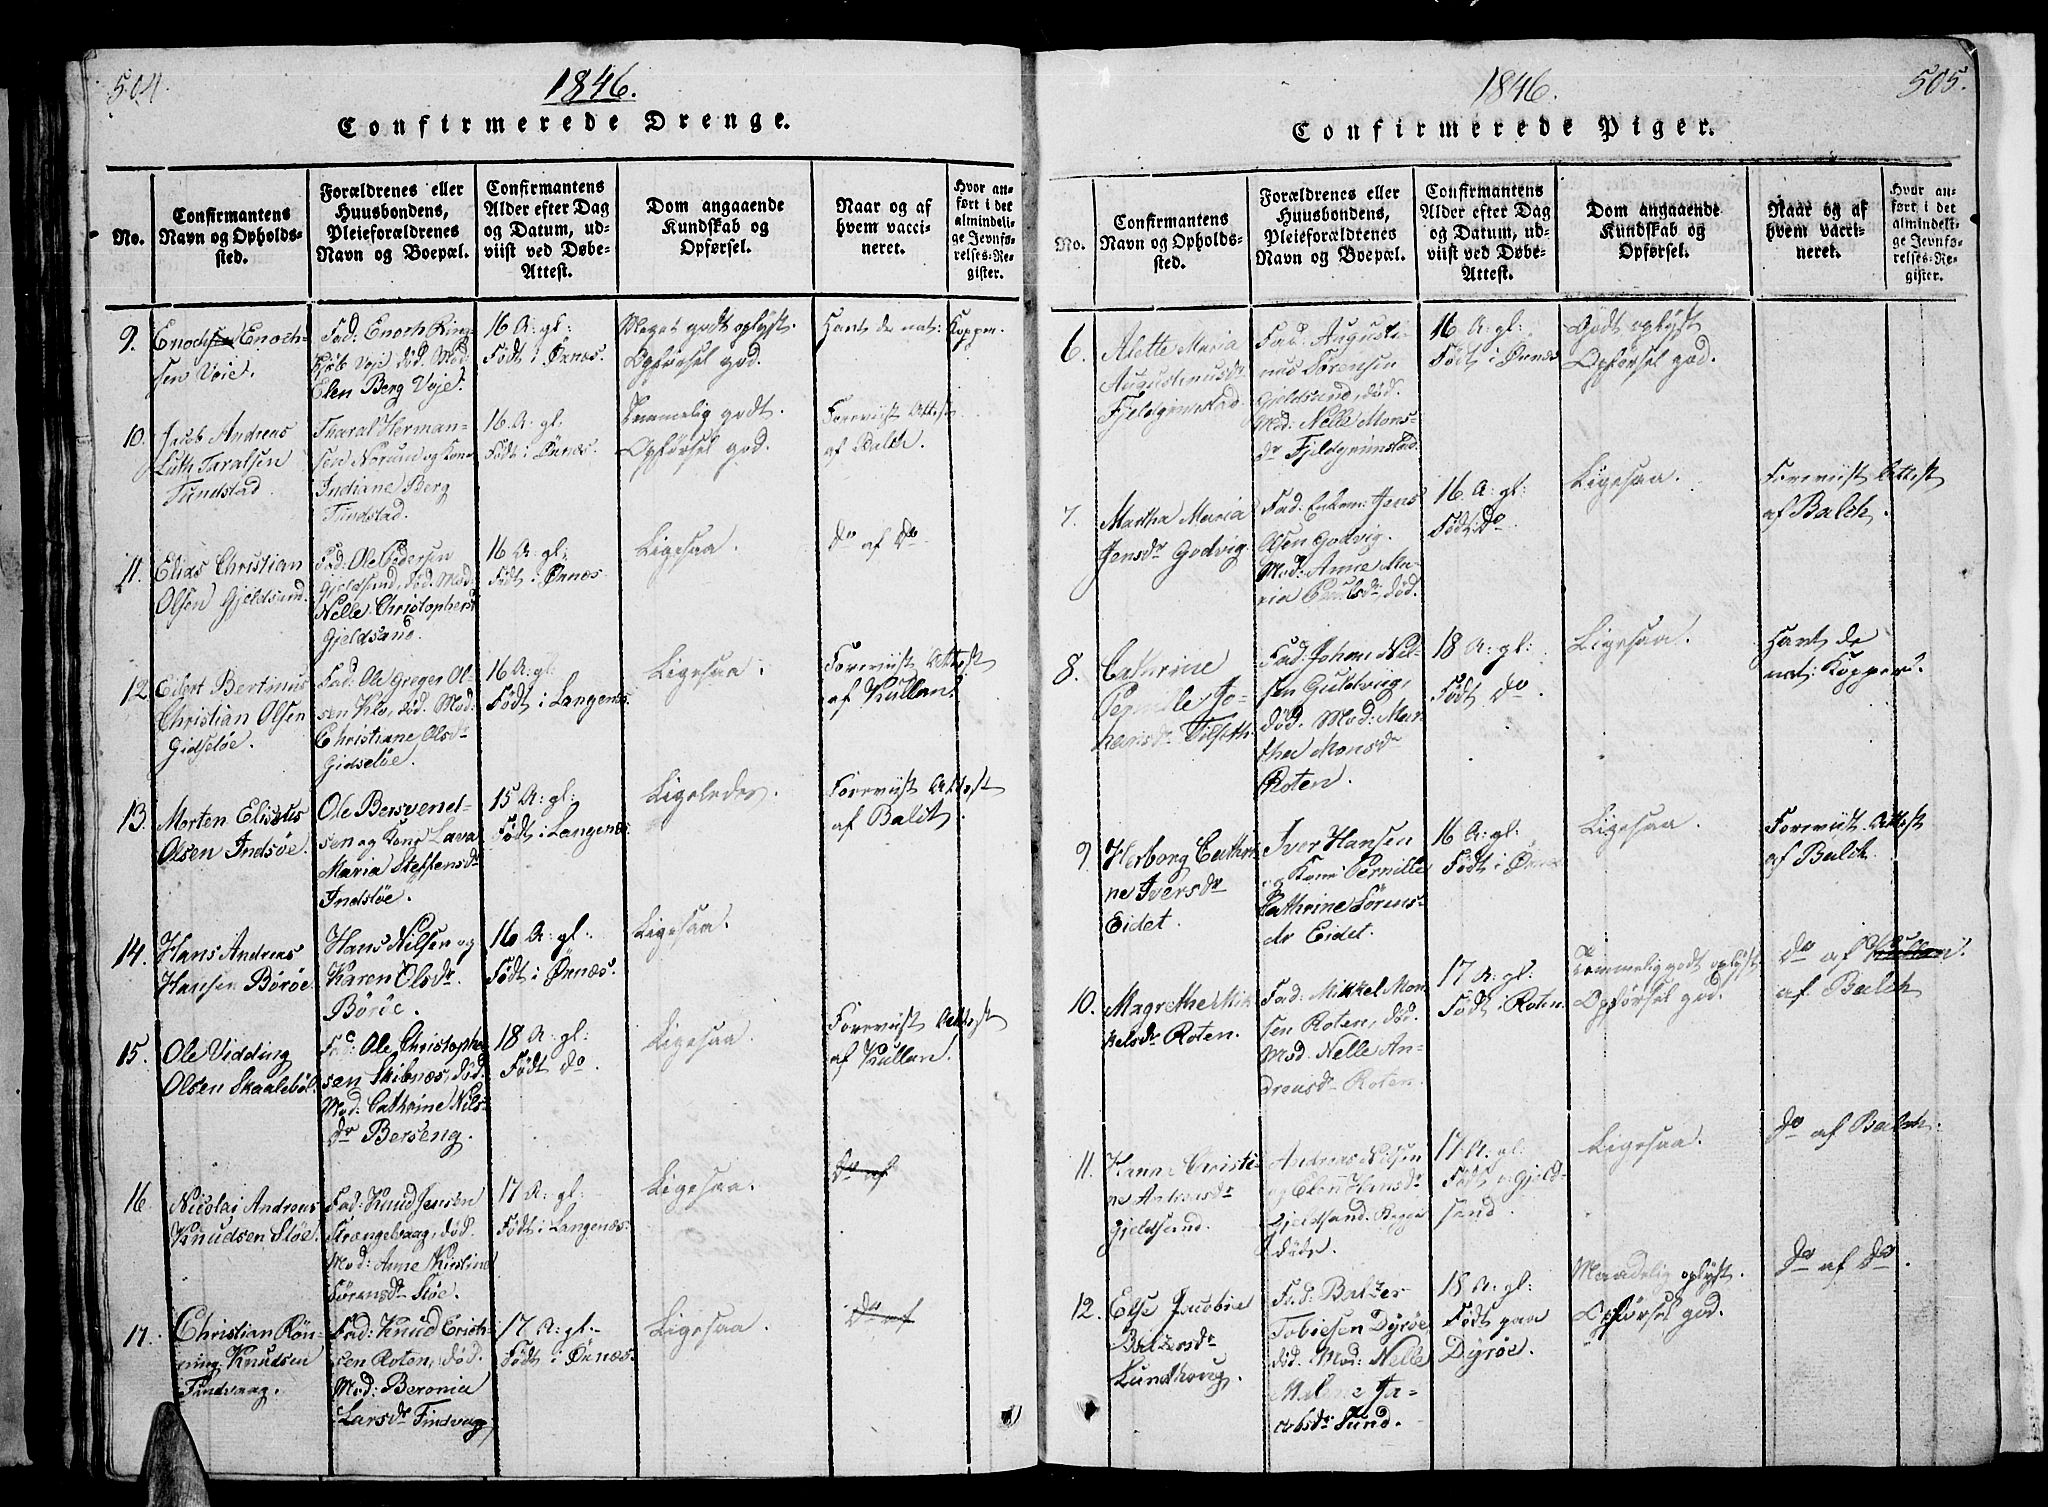 504.
1846.
Confirmerede Drenge.
No.
Confirmantens
Navn og Opholds-
sted.
Forældrenes eller
Huusbondens,
Pleieforældrenes
Navn og Boepæl.
Confirmantens
Alder efter Dag
og Datum, ud-
viist ved Døbe-
Attest.
Dom angaaende
Kundskab og
Opførsel.
Naar og af
hvem vacci-
neret.
Hvor an-
ført i det
almindeli-
ge Jevnfø-
relses-Re-
gister.
9.
Enoch Enoch-
sen Voie.
Fad: Enoch Ring
Voje død. Mod
Elen Berg Voje.
16 A: gl:
Født i Ørnæs.
Meget godt oplyst.
Opførsel god.
Havt de nat: Kopper.
10.
Jacob Andreas
Luth Taralsen
Tundstad
Tharal Herman-
sen Norum og Kone
Indiane Berg
Tindstad.
16 A. gl.
Født i Ørnæs.
Temmelig godt.
Opførsel god.
Foreviist Attest
af Balch.
11.
Elias Christian
Olsen Gjeldsund.
Fad: Ole Pedersen
Gjeldsund, død. Mod:
Nelle Christophersd
Gjeldsand.
16 A: gl:
Født i Ørnæs
Ligesaa.
Do af Do
12.
Edert Bertinus
Christian Olsen
Gidsløe.
Fad: Ole Greger Ol-
sen Klo, død. Mod:
Christiane Olsdr
Gidsløe.
16 A: gl:
Født i Langenæs.
Ligesaa.
Foreviist Attest
af Kullan!
13.
Morten Elisæus
Olsen Indsøe.
Ole Bersvend-
sen og Kone Lava
Maria Steffensdr
Indsløe.
15 A: gl:
Født i Langenæs.
Ligeledes.
Foreviist Attest
af Balch.
14.
Hans Andreas
Hansen Börøe.
Hans Nilsen og
Karen Olsdr.
Börøe.
16 A: gl:
Født i Ørnæs.
Ligesaa.
15.
Ole Vidding
Olsen Skaalebøl.
Fad: Ole Christopher
sen Skibnæs, død.
Mod: Cathrine Nils-
dr Berseng.
18 A: gl:
Født do.
Ligesaa.
Foreviist Attest
af Kullan!
16.
Nicolai Andreas
Knudsen Sløe.
Fad: Knud Jensen
Strængelvaag, død.
Mod: Anne Kirstine
Sörensdr Sløe.
17 A: gl:
Født i Langenæs.
Ligesaa.
Do af
17.
Christian Rön-
ning Knudsen
Findvaag.
Fad: Knud Erich-
sen Roten, død.
Mod: Beronia
Larsdr Findvaag
17 A: gl:
Født i Ørnæs.
Ligesaa.
Do af
505.
1846.
Confirmerede Piger.
No.
Confirmantens
Navn og Opholds-
sted.
Forældrenes eller
Huusbondens,
Pleieforældrenes
Navn og Boepæl.
Confirmantens
Alder efter Dag
og Datum, ud-
viist ved Døbe-
Attest.
Dom angaaende
Kundskab og
Opførsel.
Naar og af
hvem vacci-
neret.
Hvor an-
ført i det
almindeli-
ge Jevnfø-
relses-Re-
gister.
6.
Alette Maria
Augustinusdr
Fjeldgrimstad.
Fad: Augusti-
nus Sörensen
Gjeldsund, død.
Mod: Nelle Mons-
dr Fjeldgrimstad.
16 A: gl:
Født i Ørnæs
Godt oplyst
Opførsel god.
7.
Martha Maria
Jensdr Godvig
Fad: Enkem: Jens
Olsen Godvig.
Mod: Anne Ma-
ria Paulsdr, død.
16 A: gl:
Født Do
Ligesaa.
Foreviist Attest
af Balch.
8.
Cathrine
Pernille Jo-
hansdr Tilseth.
Fad: Johan Niel-
sen Guldvug,
død. Mod: Mar-
tha Monsdr
Roten.
18 A: gl:
Født Do.
Ligesaa.
Havt de
nat: Kopper.
9.
Herborg Cathri-
ne Iversdr
Eidet.
Iver Hansen
og Kone Pernille
Cathrine Sörens-
dr Eidet.
16 A: gl:
Født i Ørnæs
Ligesaa.
Foreviist Attest
af Balch.
10.
Magrethe Mik-
kelsdr Roten.
Fad: Mikkel Mon-
sen Roten, død.
Mod: Nelle An-
dreasdr Roten.
17 A: gl:
Født i Roten.
Temmelig godt oplyst.
Opførsel god.
Do af Kullan.
af Balch
11.
Hanne Christi-
ne Andreasdr
Gjeldsand.
Andreas Nilsen
og Elen Hansdr
Gjeldsand. Begge
døde.
17 A: gl.
Født i Gjeld-
sand.
Ligesaa.
Do af Balch.
12.
Else Jacobia
Baltzersdr
Lundhoug.
Fad: Baltzer
Tobiesen Dyröe
død. Mod: Nelle
Malene Ja-
cobsdr Sund.
18 A: gl:
Født paa
Dyröe.
Maadelig oplyst.
Opførsel god.
Do af Do.